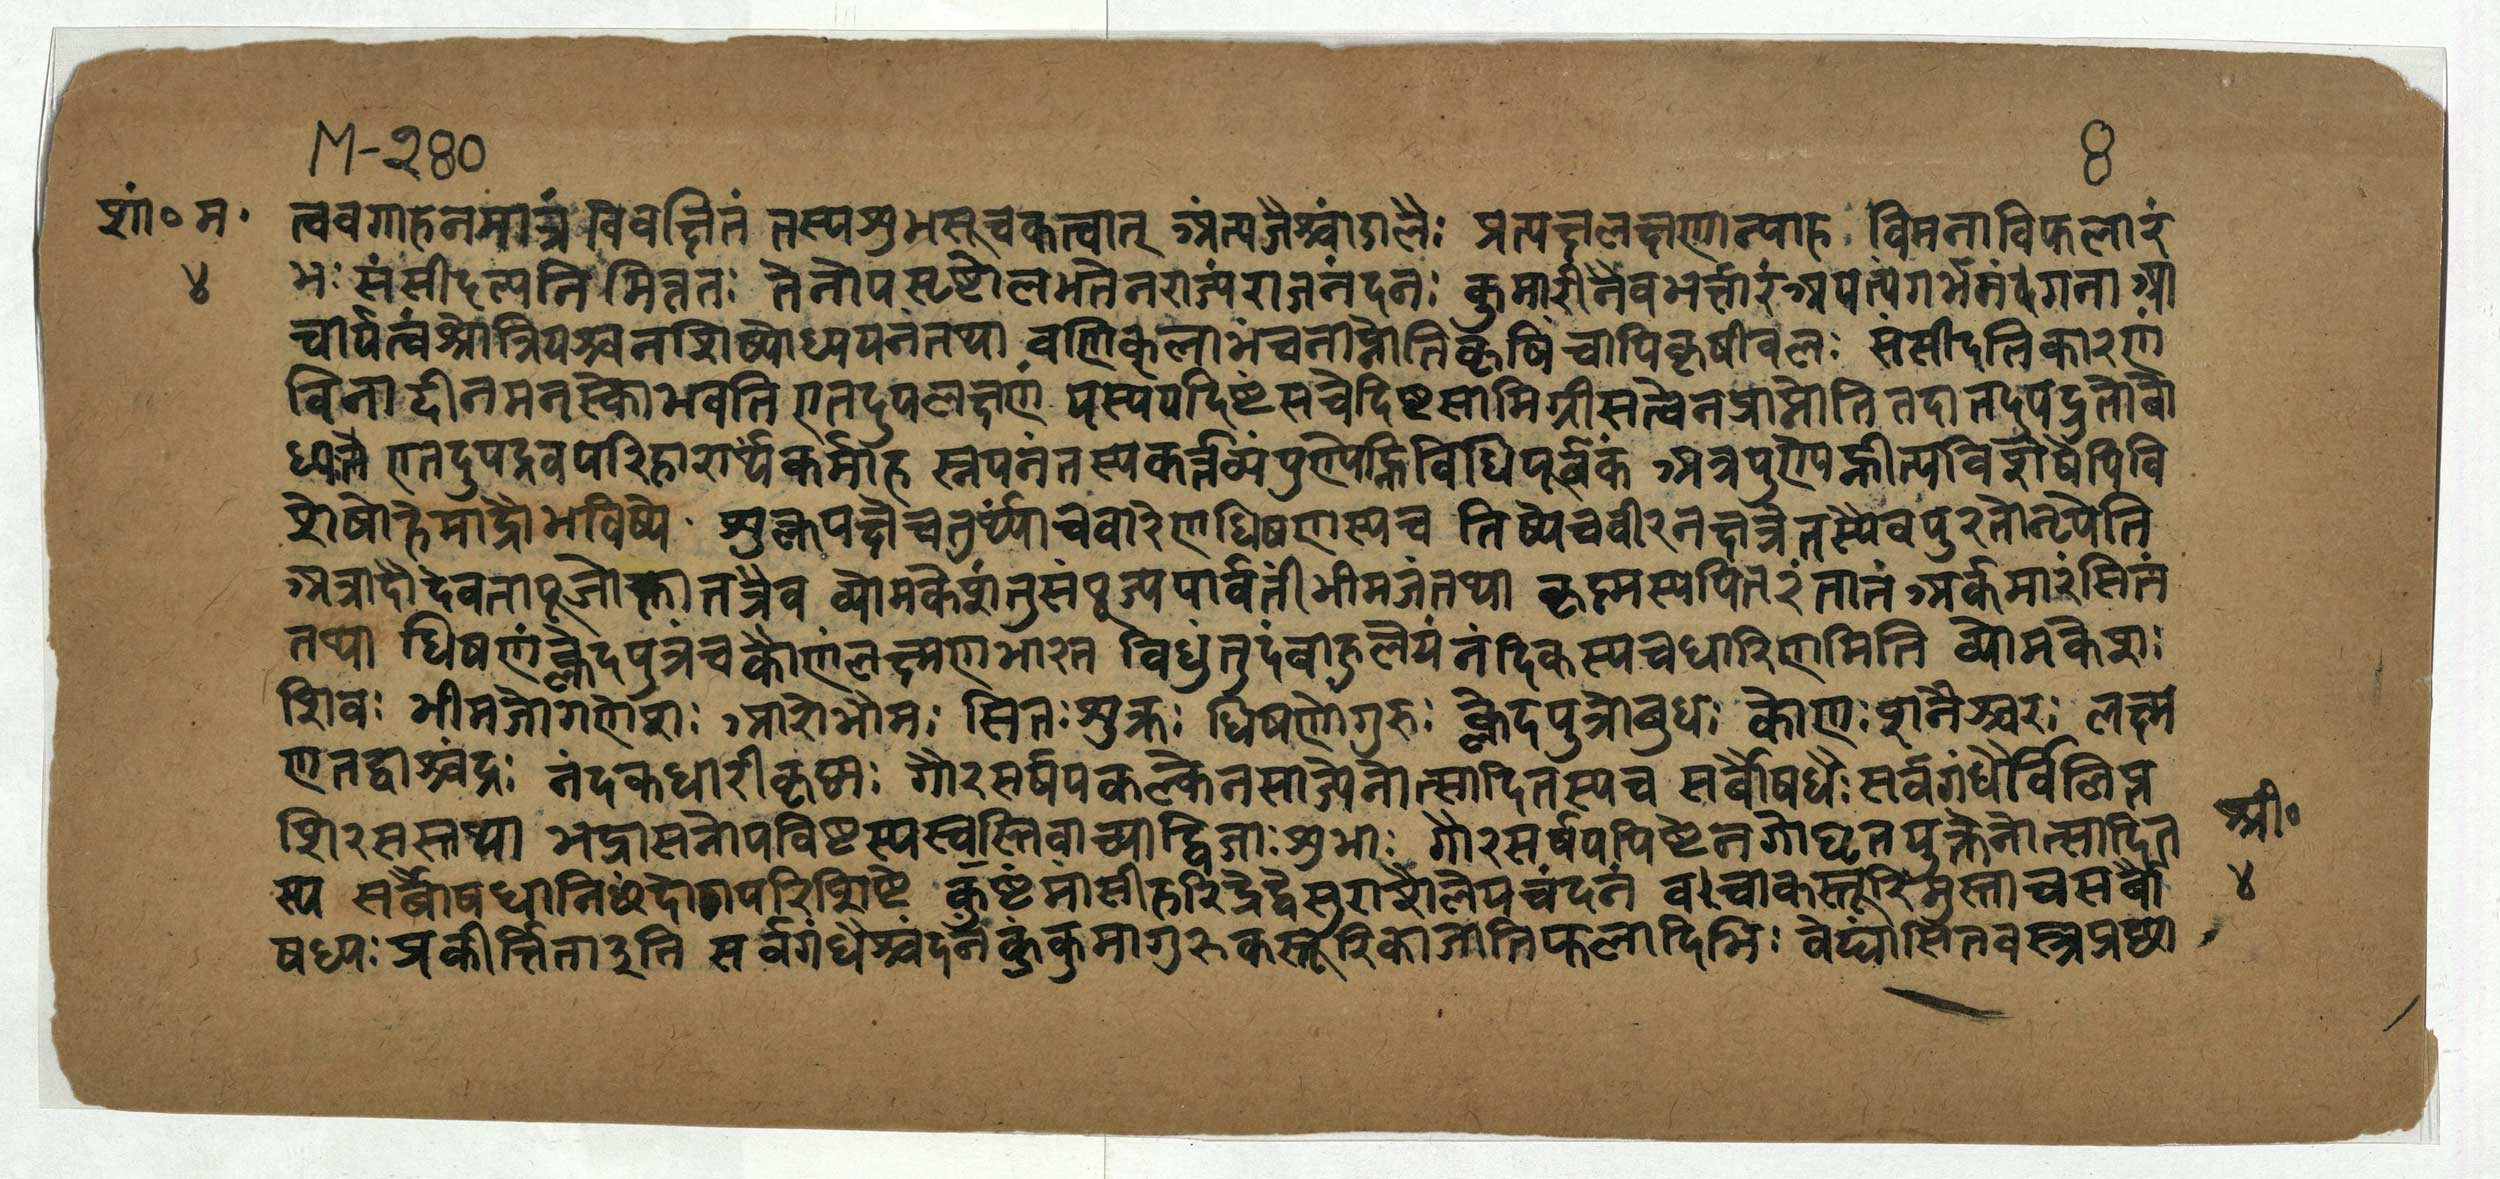 M-२४०
४
शां॰ म॰
४
त्ववगाहनमात्रं विवक्षितं तस्यशुभसूचकत्वात् अंत्यजैश्चांडालैः प्रत्यक्षलक्षणान्याह विमनाविफलारं
भः संसीदत्यनिमित्ततः तेनोपसृष्टोलभतेनराज्यंराजनंदनः कुमारीनैवभर्त्तारंअपत्यंगर्भमंगनाआ
चार्यत्वंश्रोत्रियश्चनशिष्योध्ययनंतथा वणिक्लाभंचनाप्नोतिकृषिंचापिकृषीवलः संसीदतिकारणं
विनादीनमनस्कोभवति एतदुपलक्षणं यस्ययदिष्टंसचेदिष्टसामिग्रीसत्वेनप्राप्नोति तदातदुपद्रुतोबो
ध्यते एतदुपद्रवपरिहारार्थ्यंकर्माह स्नपनंतस्यकर्त्तव्यंपुण्येह्निविधिपूर्वकं अत्रपुण्येह्नीत्यविशेषेपिवि
शेषोहेमाद्रौभविष्ये शुक्लपक्षेचतुर्थ्यांचवारेणधिषणस्यच तिष्येचवीरनक्षत्रेतस्यैवपुरतोनृपेति
अत्रादौदेवतापूजोक्तातत्रैव व्योमकेशंतुसंपूज्यपार्वतींभीमजंतथा कृष्णस्यपितरंतातंअर्कमारंसितं
तथा धिषणंक्लेदपुत्रंचकोणंलक्ष्मणभारत विधुंतुदंबाहुलेयंनंदिकस्यचधारिणमिति व्योमकेशः
शिवः भीमजोगणेशः आरोभौमः सितःशुक्रः धिषणोगुरुः क्लेदपुत्रोबुधः कोणःशनैश्चरः लक्ष्म
णतद्वाश्चंद्रः नंदकधारीकृष्णः गौरसर्षपकल्केनसाज्येनोत्सादितस्यच सर्वौषधैःसर्वगंधैर्विलिप्त
शिरसस्तथा भद्रासनोपविष्टस्यस्वस्तिवाच्याद्विजाःशुभाः गौरसर्षपपिष्टेनगोघृतयुक्तेनोत्सादित
स्य सर्वौषधानिछंदोगपरिशिष्टे कुष्टंमांसीहरिद्रेद्वेमुराशैलेयचंदनं वचाकस्तूरिमुस्ताचसर्वौ
षध्यः प्रकीर्त्तिताइति सर्वगंधैश्चंदनकुंकुमागुरुकस्तूरिकाजातिफलादिभिः वेद्यांसितवस्त्रप्रछा
श्री॰
४